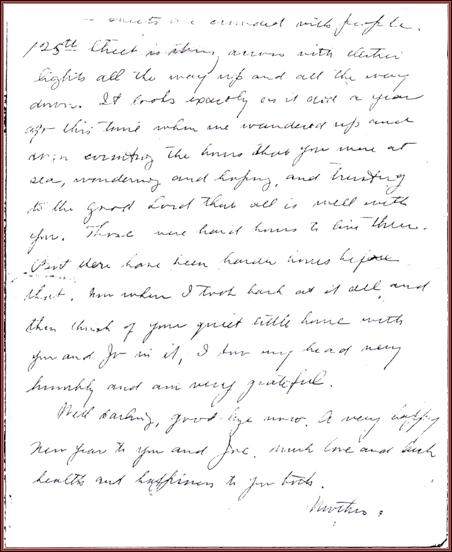 streets are crowded with people.
125th Street is strung across with electric
lights all the way up and all the way
down. It looks exactly as it did a year
ago this time when we wandered up and
down counting the hours that you were at
sea, wondering and hoping, and trusting
to the good Lord that all is well with
you. Those were hard hours to live thru.
But there have been harder ones before
that. Now when I look back at it all, and
then think of your quiet little home with
you and Joe in it, I bow my head very
humbly and am very grateful.
Well darling, good-bye now. A very happy
New Year to you and Joe. Much love and luck
health and happiness to you both.
Mother.